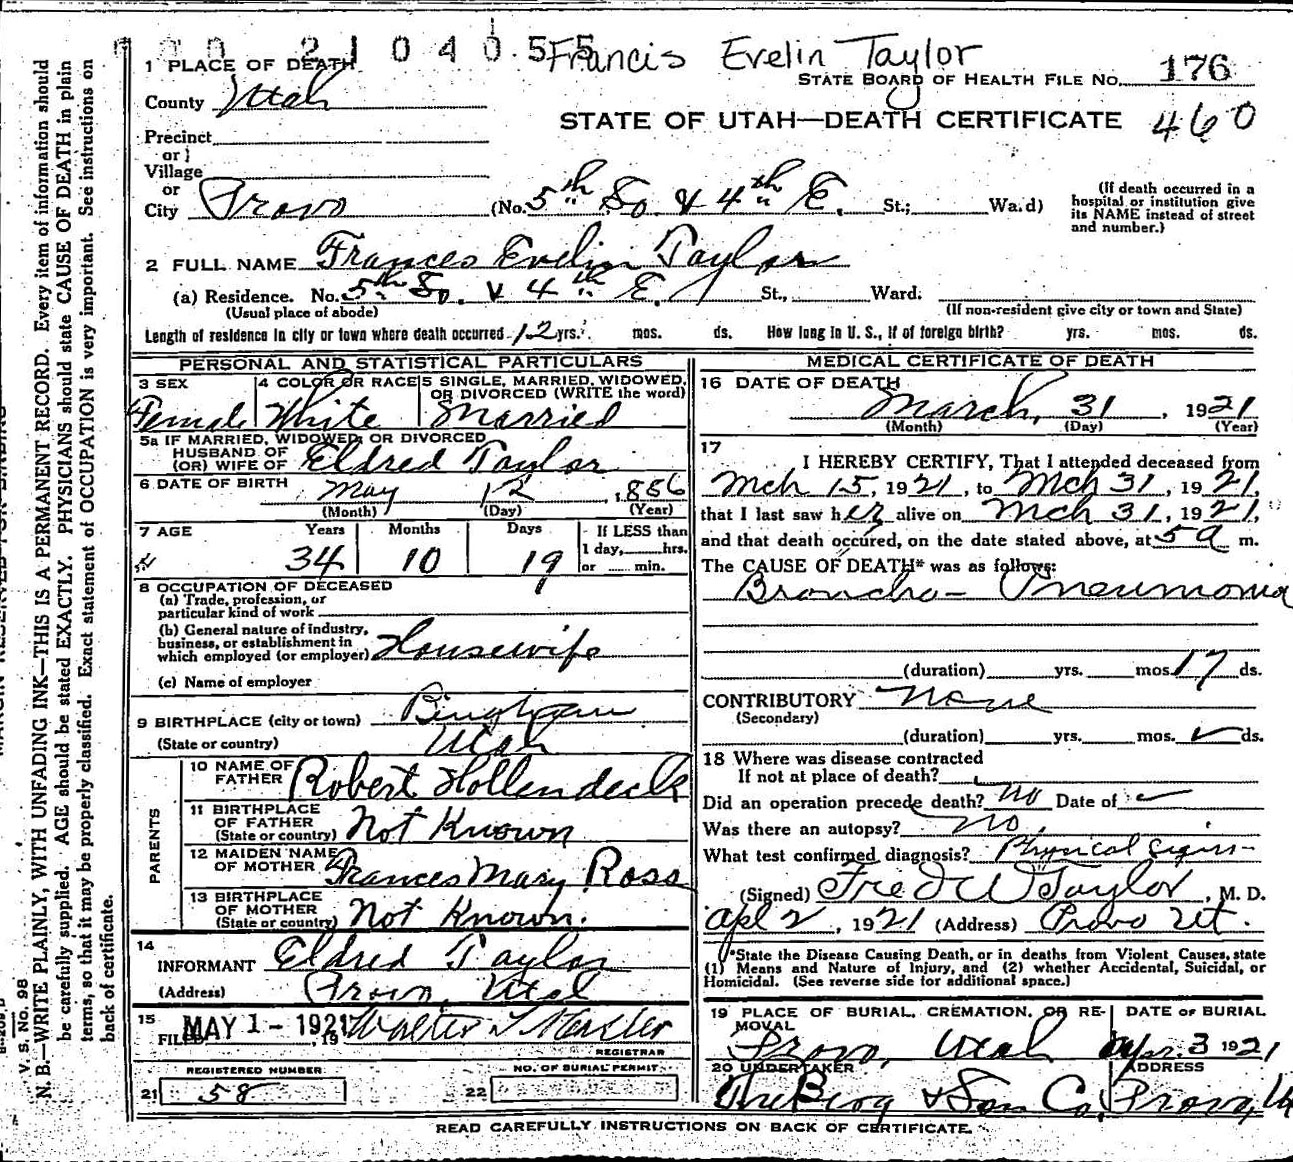 2104055
Francis Evelin Taylor
1 PLACE OF DEATH
STATE BOARD OF HEALTH FILE NO. 176
County Utah
STATE OF UTAH—DEATH CERTIFICATE 460
Precinct
or }
Village
or
City Provo (No. 5th So. & 4th E. St.; Ward)
(If death occurred in a hospital or institution give its NAME instead of street and number.)
2 FULL NAME Frances Evelin Taylor
(a) Residence. No. 5th So. & 4th E. St., Ward.
(Usual place of abode) (If non-resident give city or town and State)
Length of residence in city or town where death occurred 12 yrs. mos. ds. How long in U. S., if of foreign birth? yrs. mos. ds.
PERSONAL AND STATISTICAL PARTICULARS
3 SEX 4 COLOR OR RACE 5 SINGLE, MARRIED, WIDOWED, OR DIVORCED (WRITE the word)
Female White Married
5a IF MARRIED, WIDOWED, OR DIVORCED
HUSBAND OF
(OR) WIFE OF Eldred Taylor
6 DATE OF BIRTH May 12, 1886
(Month) (Day) (Year)
7 AGE Years Months Days If LESS than
34 10 19 1 day, hrs.
or min.
8 OCCUPATION OF DECEASED
(a) Trade, profession, or
particular kind of work
(b) General nature of industry,
business, or establishment in
which employed (or employer) Housewife
(c) Name of employer
9 BIRTHPLACE (city or town) Bingham
(State or country) Utah
PARENTS
10 NAME OF
FATHER Robert Hollendeck
11 BIRTHPLACE
OF FATHER
(State or country) Not Known
12 MAIDEN NAME
OF MOTHER Frances Mary Ross
13 BIRTHPLACE
OF MOTHER
(State or country) Not Known.
14
INFORMANT Eldred Taylor
(Address) Provo, Utah
15 FILED MAY 1 - 1921, 19 Walter T
REGISTRAR
REGISTERED NUMBER NO. OF BURIAL PERMIT
21 58 22
MEDICAL CERTIFICATE OF DEATH
16 DATE OF DEATH
March, 31, 1921
(Month) (Day) (Year)
17
I HEREBY CERTIFY, That I attended deceased from
Mch 15, 1921, to Mch 31, 1921,
that I last saw her alive on Mch 31, 1921,
and that death occured, on the date stated above, at 5 a m.
The CAUSE OF DEATH* was as follows:
Broncho- Pneumonia
(duration) yrs. mos. 17 ds.
CONTRIBUTORY None
(Secondary)
(duration) yrs. mos. ds.
18 Where was disease contracted
If not at place of death?
Did an operation precede death? No Date of
Was there an autopsy? No.
What test confirmed diagnosis? Physical signs-
(Signed) Fred W Taylor, M. D.
Apl 2, 1921 (Address) Provo Ut.
*State the Disease Causing Death, or in deaths from Violent Causes, state
(1) Means and Nature of Injury, and (2) whether Accidental, Suicidal, or
Homicidal. (See reverse side for additional space.)
19 PLACE OF BURIAL, CREMATION, OR RE-MOVAL DATE OF BURIAL
Provo, Utah Apr. 3 1921
20 UNDERTAKER ADDRESS
The Berg & Son Co. Provo, Ut
READ CAREFULLY INSTRUCTIONS ON BACK OF CERTIFICATE.
V. S. No. 98
N. B.—WRITE PLAINLY, WITH UNFADING INK—THIS IS A PERMANENT RECORD. Every item of information should
be carefully supplied. AGE should be stated EXACTLY. PHYSICIANS should state CAUSE OF DEATH in plain
terms, so that it may be properly classified. Exact statement of OCCUPATION is very important. See instructions on
back of certificate.